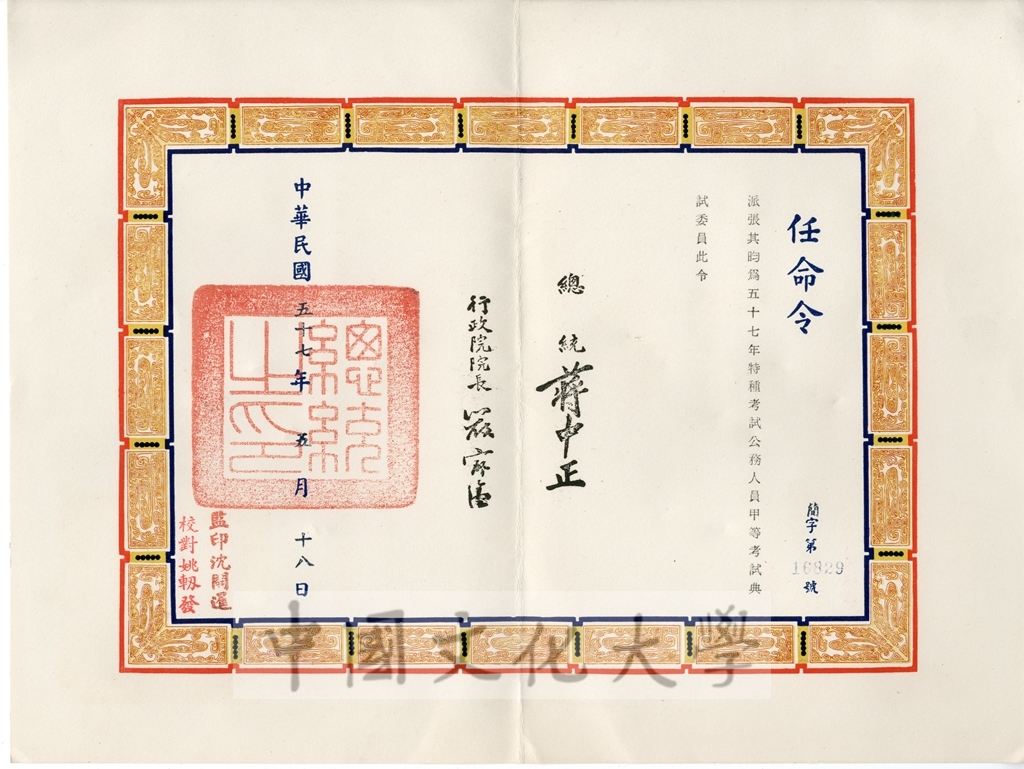 任命令
簡字第16829號
派張其昀為五十七年特種考試公務人員甲等考試典
試委員此令
總統 蔣中正
行政院院長 嚴家淦
中華民國五十七年五月十八日
總統之印
監印沈開運
校對姚軔發
中國文化大學